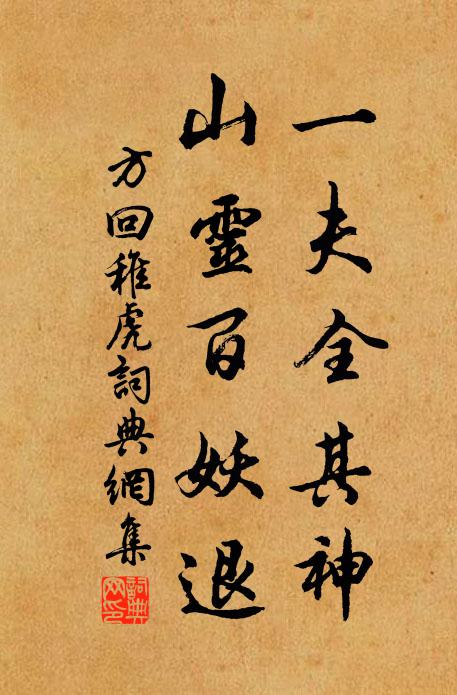 一夫全其神
山靈百妖退
方回稚虎詞典網集
詞典网印